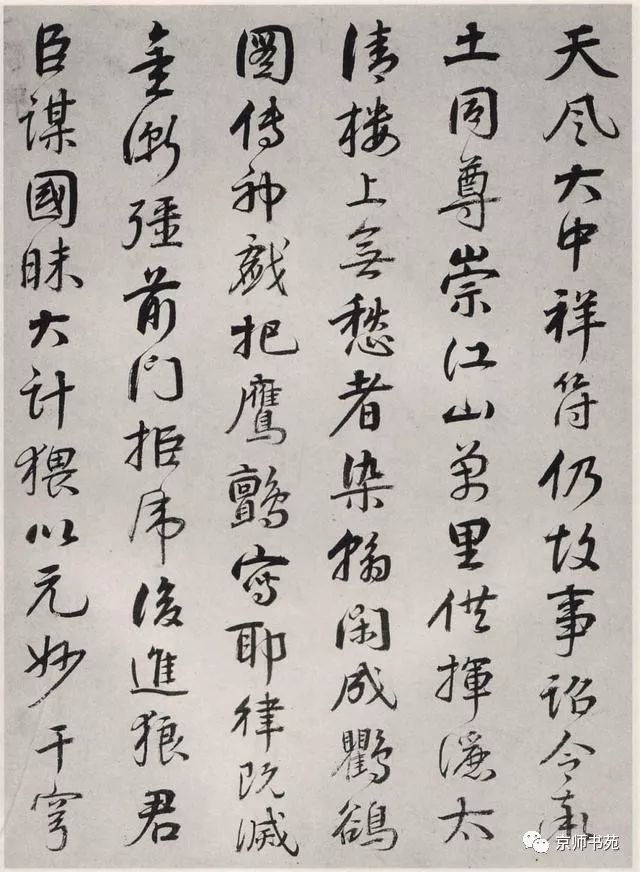 天风大中祥符仍故事诏令南
土同尊崇江山万里供挥洒太
清楼上无愁者染翰闲成鸜鹆
图传神戏把鹰鹯写耶律既灭
金渐强前门拒虎后进狼君
臣谋国昧大计猥以元妙干穹
京师书苑